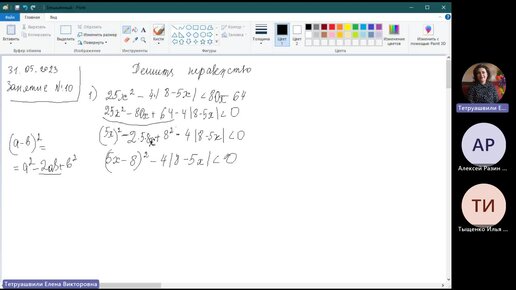 Безымянный - Paint
Файл Главная Вид
Вставить
Вырезать
Копировать
Выделить
Изменить размер
Повернуть
Кисти
Фигуры
Контур
Заливка
Толщина
Цвет 1
Цвет 2
Изменение цветов
Изменить с помощью Paint 3D
Буфер обмена Изображение Инструменты Фигуры Цвета
31.05.2023
Занятие №10
Решить неравенство
1) 25x² - 4|8-5x| < 80x - 64
25x² - 80x + 64 - 4|8-5x| < 0
(5x)² - 2·5·8x + 8² - 4|8-5x| < 0
(5x-8)² - 4|8-5x| < 0
(a-b)² =
= a² - 2ab + b²
Тетруашвили Е...
АР
Алексей Разин
ТИ
Тыщенко Илья
Тетруашвили Елена Викторовна